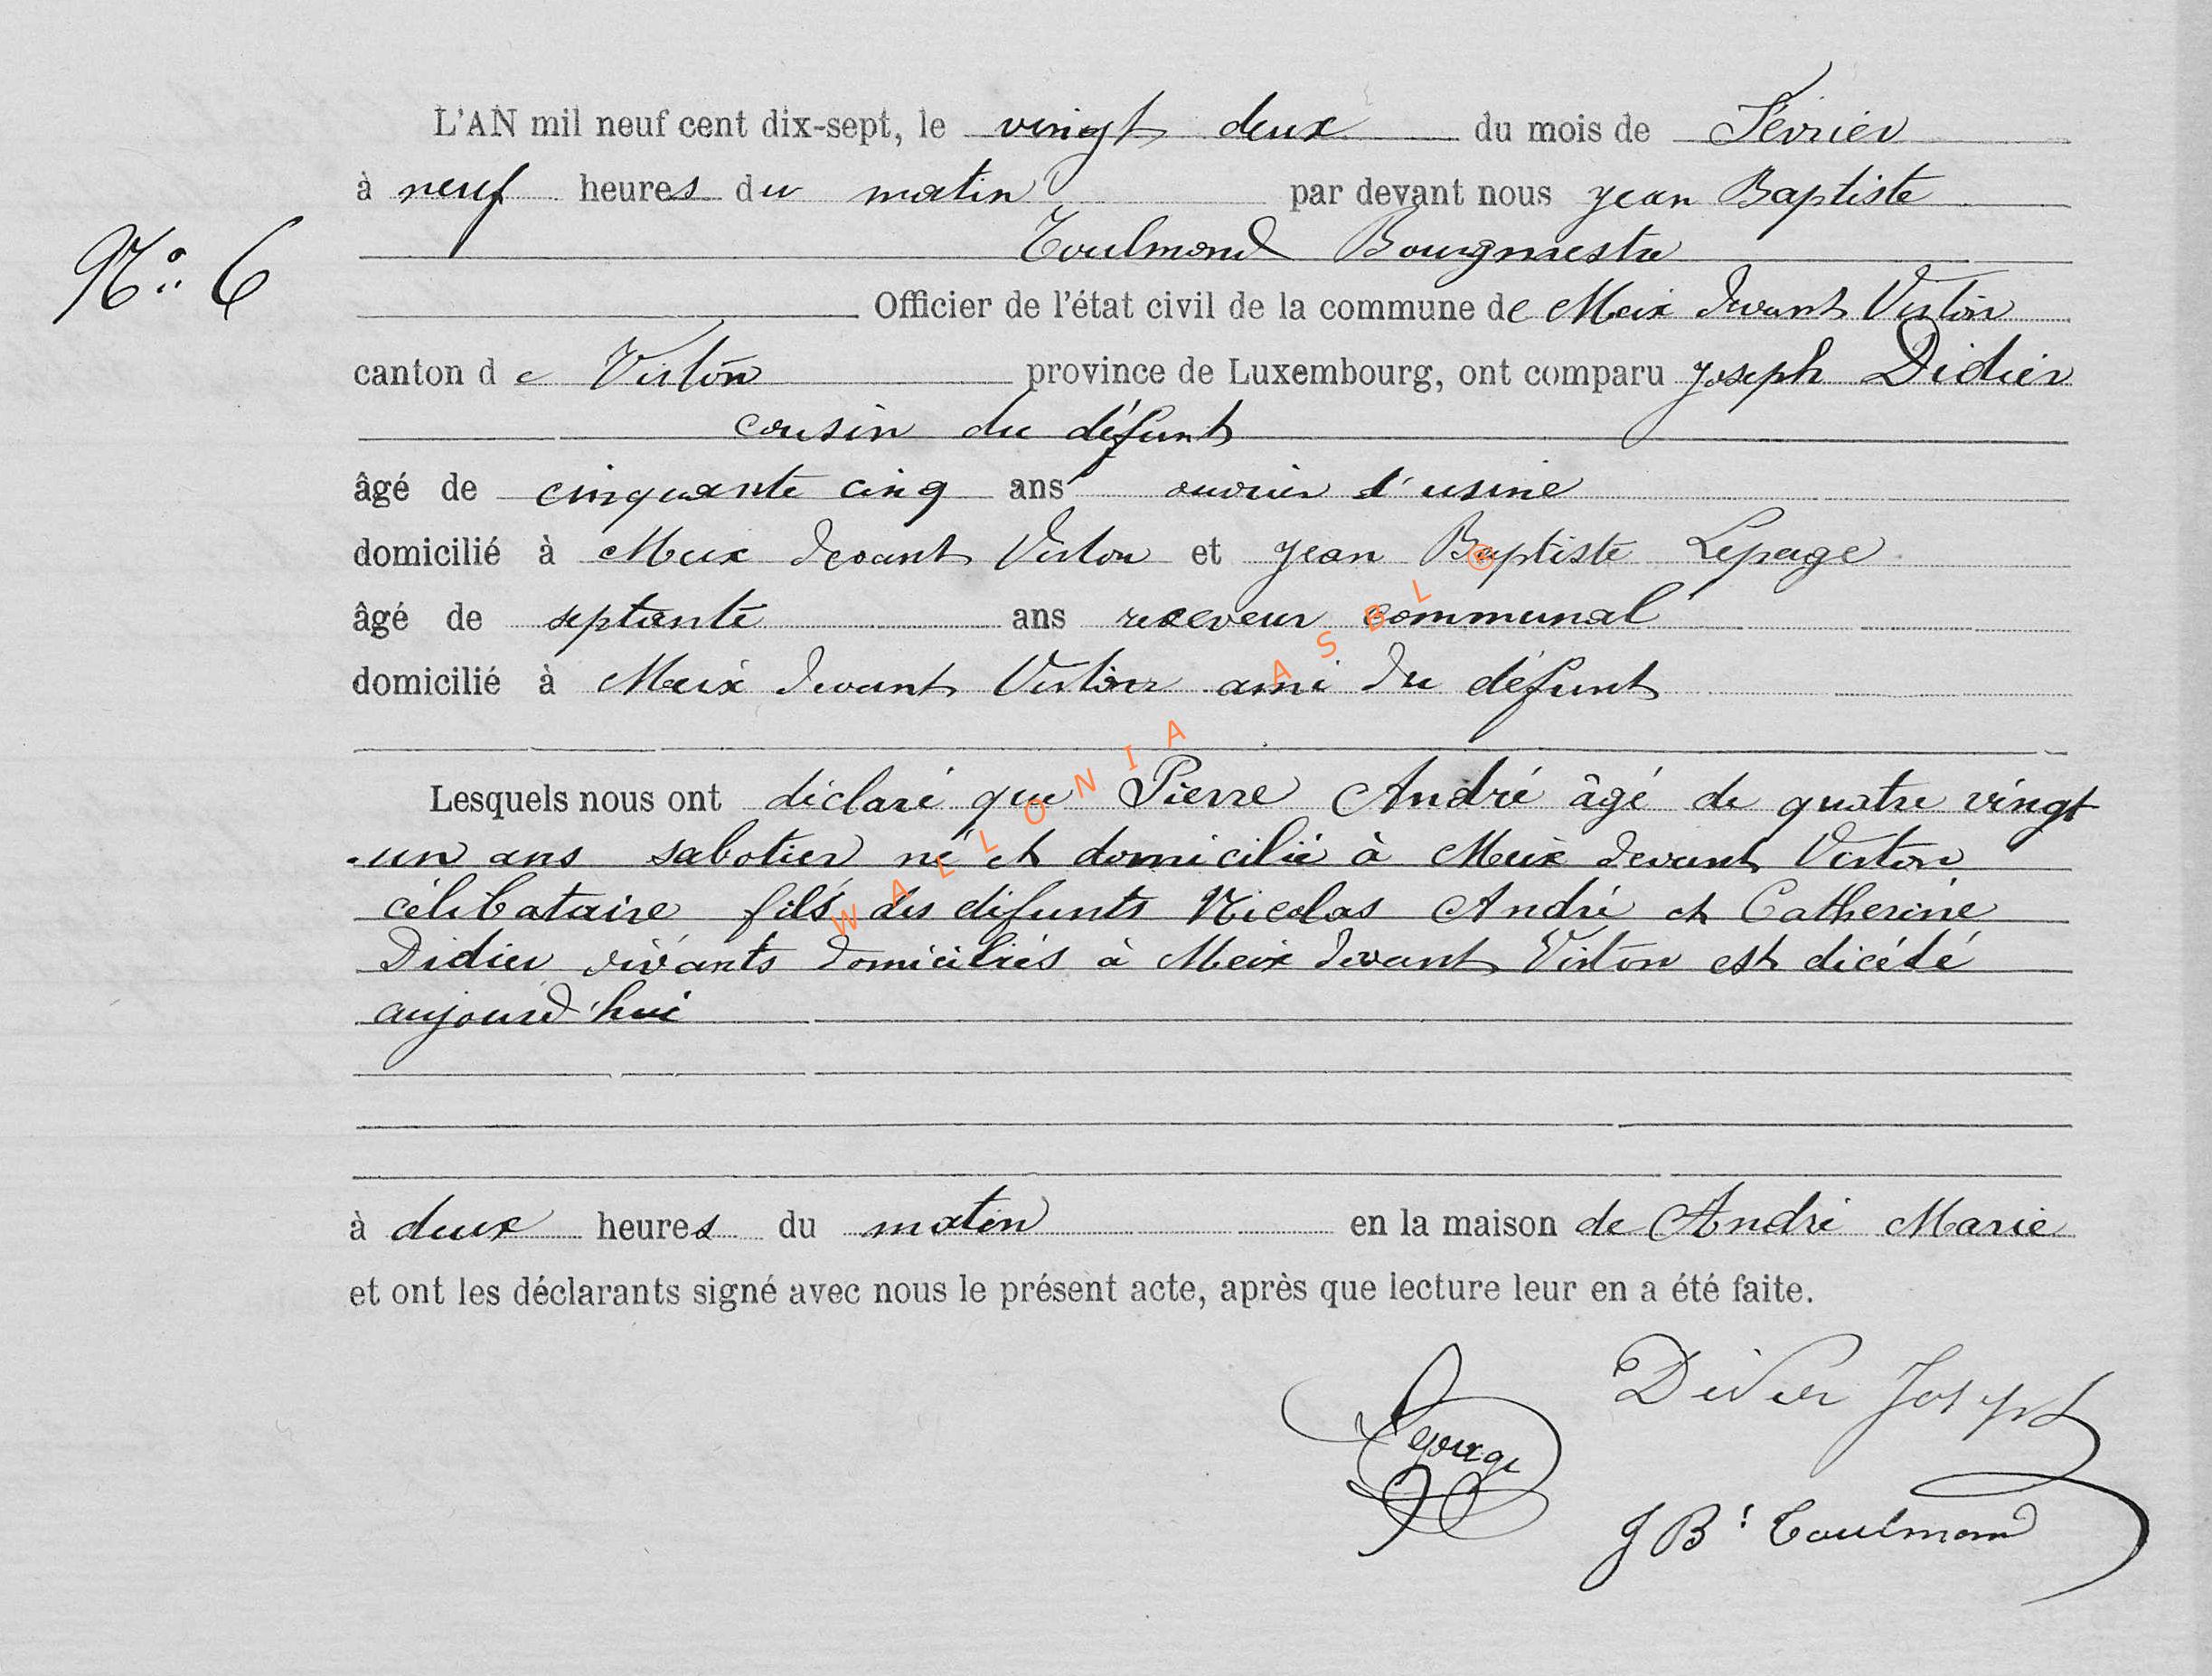 L'AN mil neuf cent dix-sept, le vingt deux du mois de Février
à neuf heures du matin par devant nous Jean Baptiste
Toulmond Bourgmestre
N° 6
Officier de l'état civil de la commune de Meix devant Virton
canton de Virton province de Luxembourg, ont comparu Joseph Didier
cousin du défunt
âgé de cinquante cinq ans ouvrier d'usine
domicilié à Meix devant Virton et Jean Baptiste Lepage
âgé de septante ans receveur communal
domicilié à Meix devant Virton ami du défunt
Lesquels nous ont déclaré que Pierre André âgé de quatre vingt
un ans sabotier né et domicilié à Meix devant Virton
célibataire fils des défunts Nicolas André et Catherine
Didier vivants domiciliés à Meix devant Virton est décédé
aujourd'hui
à deux heures du matin en la maison de André Marie
et ont les déclarants signé avec nous le présent acte, après que lecture leur en a été faite.
Didier Joseph
Lepage
J Bte Toulmond
WALLONIA ASBL ®